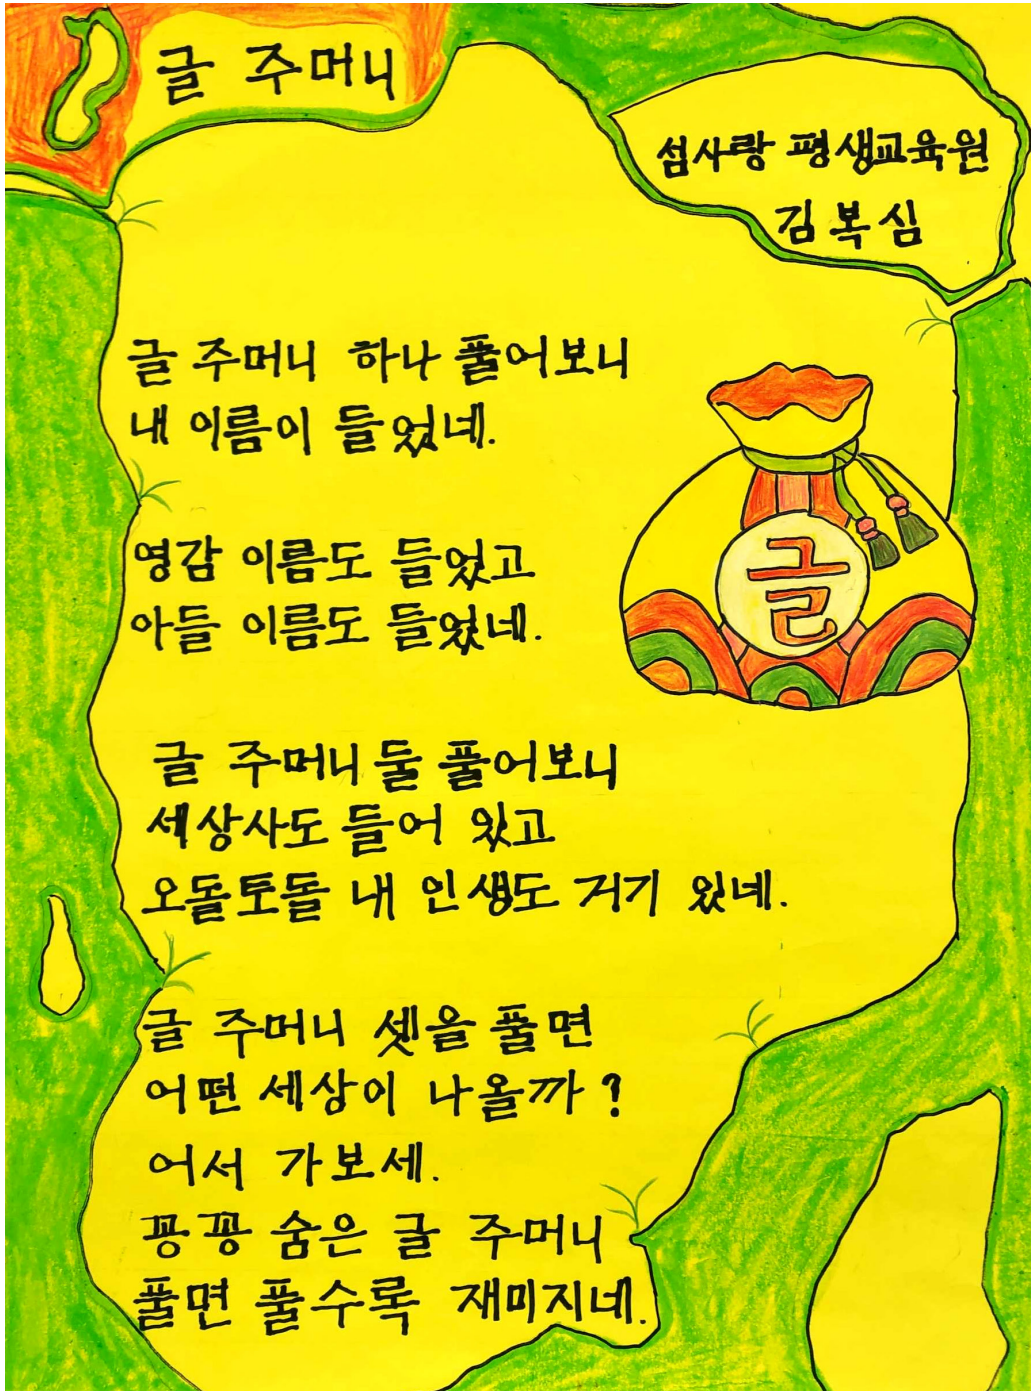 글 주머니
섬사랑 평생교육원
김복심
글 주머니 하나 풀어보니
내 이름이 들었네.
영감 이름도 들었고
아들 이름도 들었네.
글
글 주머니 둘 풀어보니
세상사도 들어 있고
오돌토돌 내 인생도 거기 있네.
글 주머니 셋을 풀면
어떤 세상이 나올까?
어서 가보세.
꽁꽁 숨은 글 주머니
풀면 풀수록 재미지네.